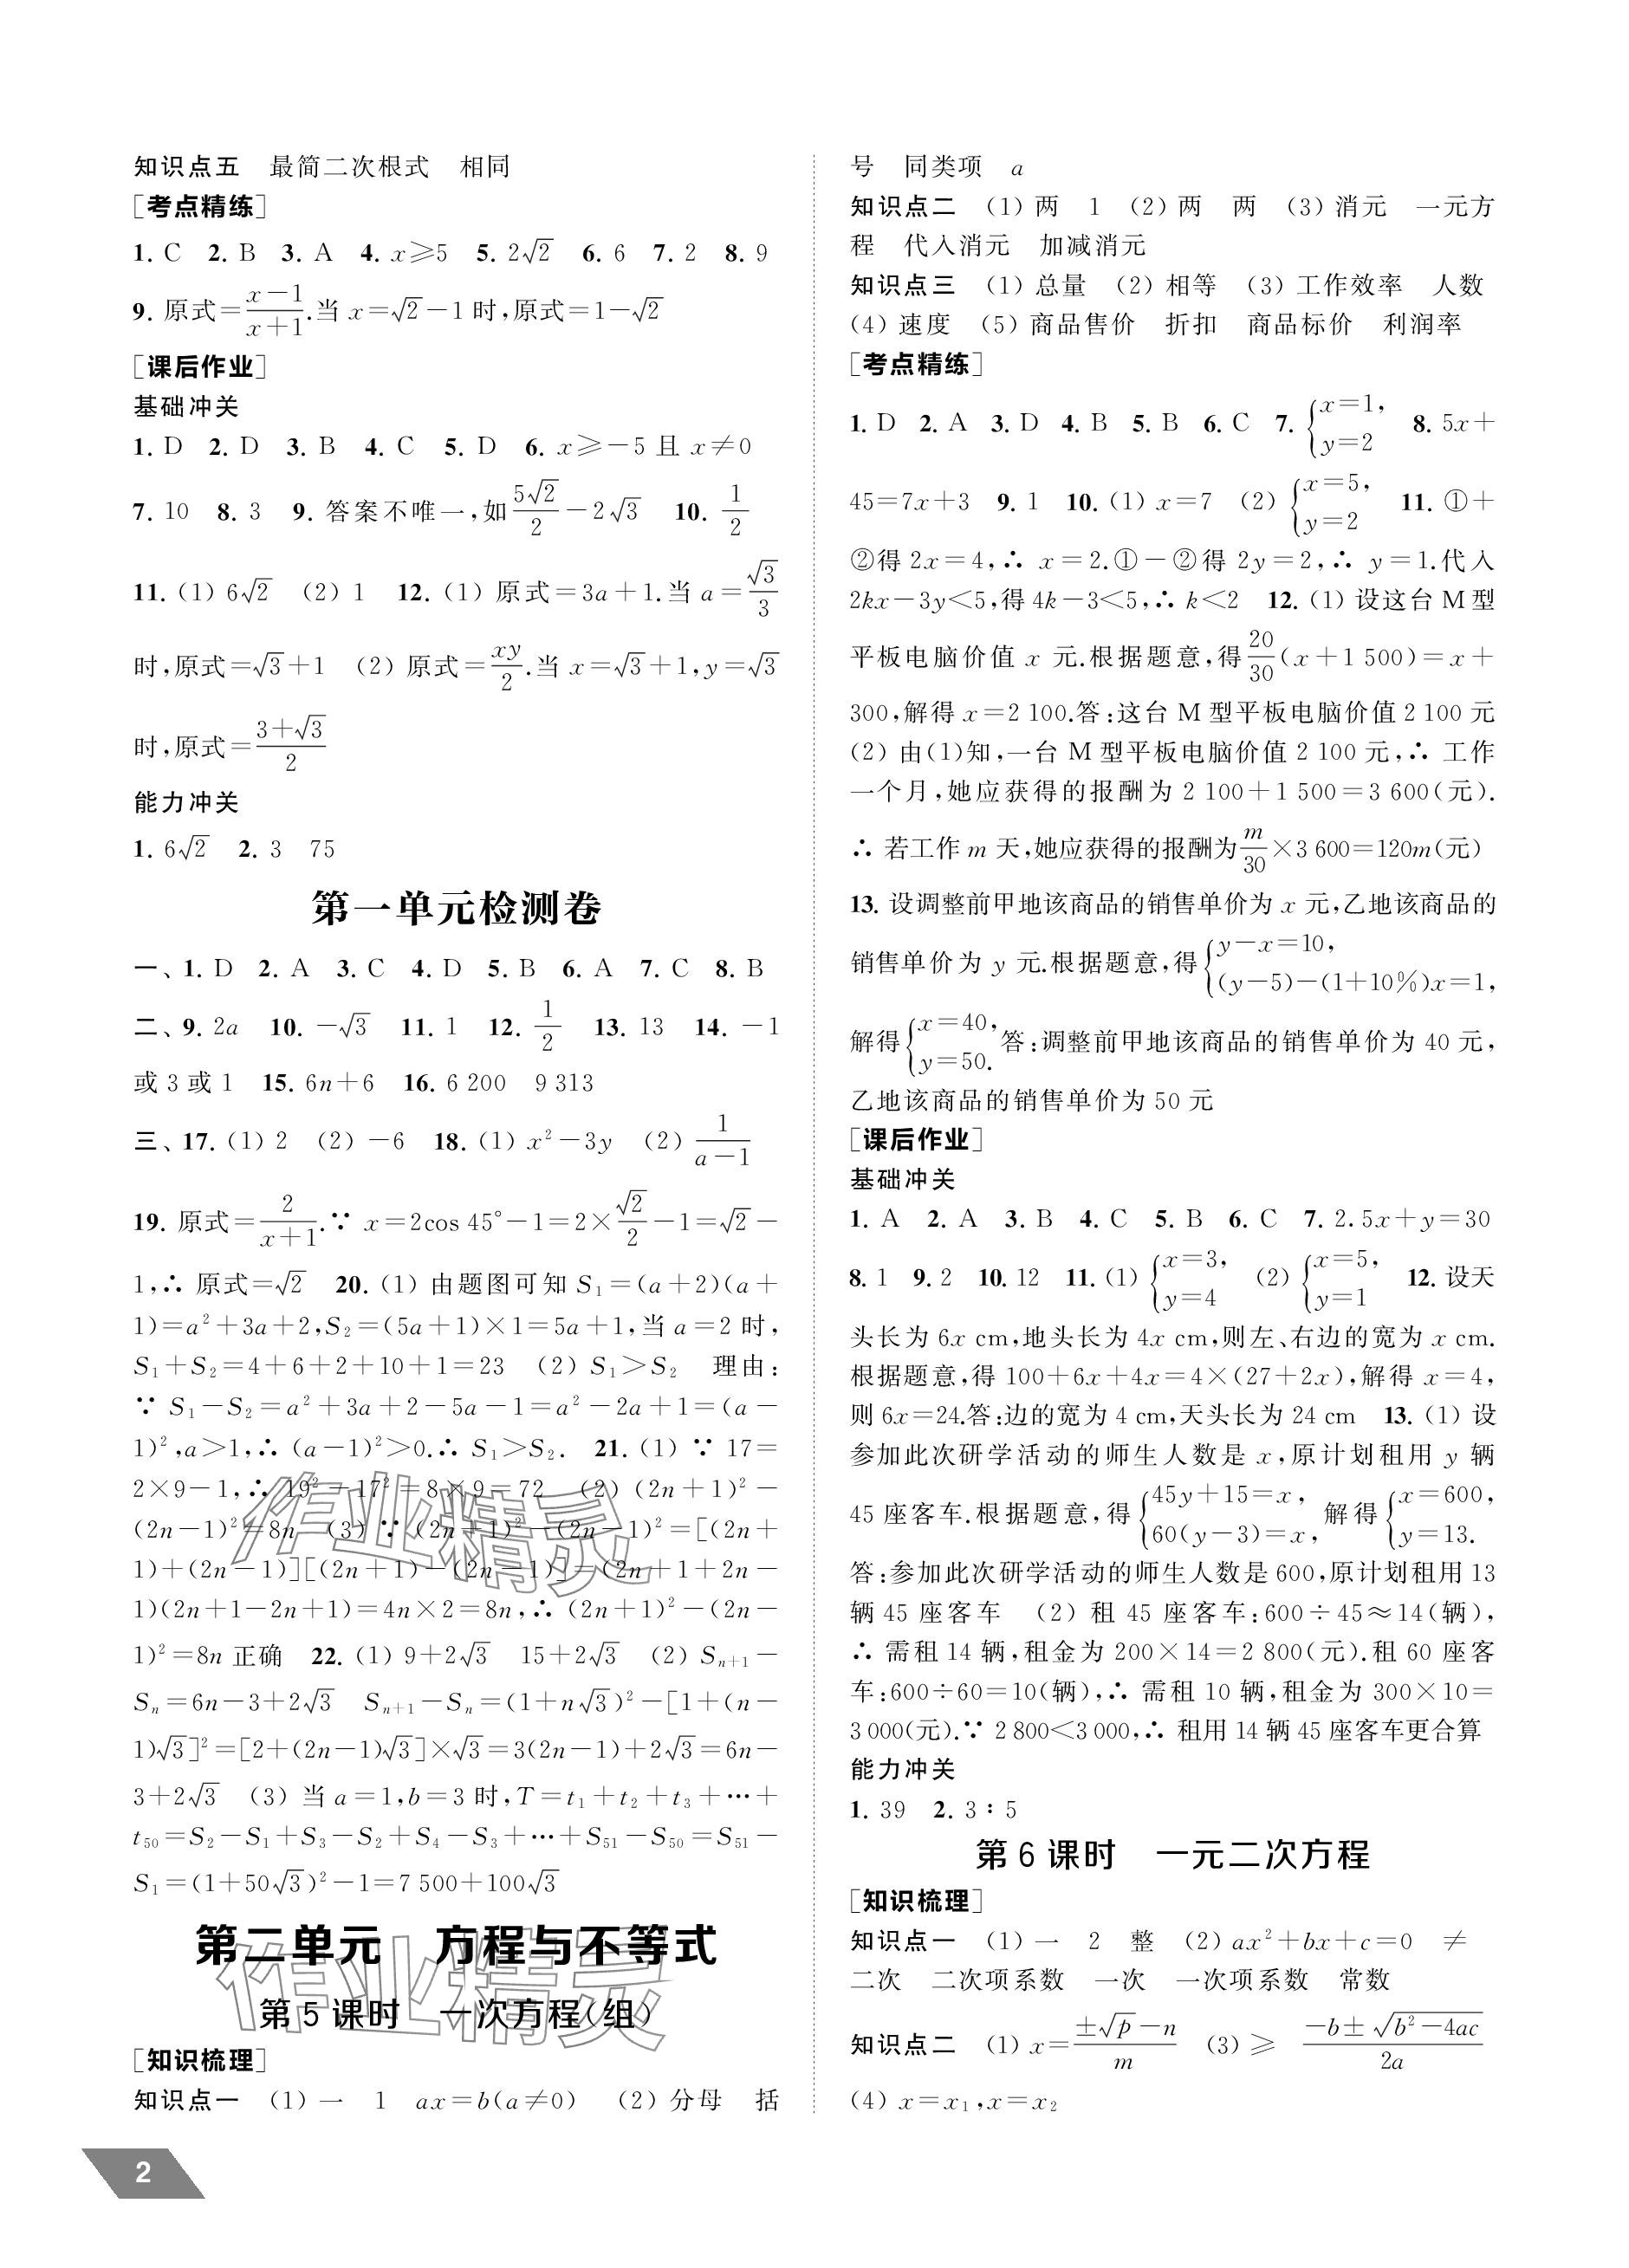 知识点五　最简二次根式　相同
[考点精练]
1. C　2. B　3. A　4. x≥5　5. 2√2　6. 6　7. 2　8. 9
9. 原式=(x-1)/(x+1).当 x=√2-1 时,原式=1-√2
[课后作业]
基础冲关
1. D　2. D　3. B　4. C　5. D　6. x≥-5 且 x≠0
7. 10　8. 3　9. 答案不唯一,如 5√2/2-2√3　10. 1/2
11. (1) 6√2　(2) 1　12. (1) 原式=3a+1.当 a=√3/3
时,原式=√3+1　(2) 原式=xy/2.当 x=√3+1,y=√3
时,原式=(3+√3)/2
能力冲关
1. 6√2　2. 3　75
第一单元检测卷
一、1. D　2. A　3. C　4. D　5. B　6. A　7. C　8. B
二、9. 2a　10. -√3　11. 1　12. 1/2　13. 13　14. -1
或 3 或 1　15. 6n+6　16. 6 200　9 313
三、17. (1) 2　(2) -6　18. (1) x²-3y　(2) 1/(a-1)
19. 原式=2/(x+1).∵ x=2cos 45°-1=2×√2/2-1=√2-
1,∴ 原式=√2　20. (1) 由题图可知 S₁=(a+2)(a+
1)=a²+3a+2,S₂=(5a+1)×1=5a+1,当 a=2 时,
S₁+S₂=4+6+2+10+1=23　(2) S₁>S₂　理由:
∵ S₁-S₂=a²+3a+2-5a-1=a²-2a+1=(a-
1)²,a>1,∴ (a-1)²>0.∴ S₁>S₂.　21. (1) ∵ 17=
2×9-1,∴ 19²-17²=8×9=72　(2) (2n+1)²-
(2n-1)²=8n　(3) ∵ (2n+1)²-(2n-1)²=[(2n+
1)+(2n-1)][(2n+1)-(2n-1)]=(2n+1+2n-
1)(2n+1-2n+1)=4n×2=8n,∴ (2n+1)²-(2n-
1)²=8n 正确　22. (1) 9+2√3　15+2√3　(2) Sₙ₊₁-
Sₙ=6n-3+2√3　Sₙ₊₁-Sₙ=(1+n√3)²-[1+(n-
1)√3]²=[2+(2n-1)√3]×√3=3(2n-1)+2√3=6n-
3+2√3　(3) 当 a=1,b=3 时,T=t₁+t₂+t₃+…+
t₅₀=S₂-S₁+S₃-S₂+S₄-S₃+…+S₅₁-S₅₀=S₅₁-
S₁=(1+50√3)²-1=7 500+100√3
作业精灵
第二单元　方程与不等式
第 5 课时　一次方程(组)
作业精灵
[知识梳理]
知识点一　(1) 一　1　ax=b(a≠0)　(2) 分母　括
号　同类项　a
知识点二　(1) 两　1　(2) 两　两　(3) 消元　一元方
程　代入消元　加减消元
知识点三　(1) 总量　(2) 相等　(3) 工作效率　人数
(4) 速度　(5) 商品售价　折扣　商品标价　利润率
[考点精练]
1. D　2. A　3. D　4. B　5. B　6. C　7. {x=1, y=2　8. 5x+
45=7x+3　9. 1　10. (1) x=7　(2) {x=5, y=2　11. ①+
②得 2x=4,∴ x=2.①-②得 2y=2,∴ y=1.代入
2kx-3y<5,得 4k-3<5,∴ k<2　12. (1) 设这台 M 型
平板电脑价值 x 元.根据题意,得 20/30(x+1 500)=x+
300,解得 x=2 100.答:这台 M 型平板电脑价值 2 100 元
(2) 由(1)知,一台 M 型平板电脑价值 2 100 元,∴ 工作
一个月,她应获得的报酬为 2 100+1 500=3 600(元).
∴ 若工作 m 天,她应获得的报酬为 m/30×3 600=120m(元)
13. 设调整前甲地该商品的销售单价为 x 元,乙地该商品的
销售单价为 y 元.根据题意,得{y-x=10, (y-5)-(1+10%)x=1,
解得{x=40, y=50. 答:调整前甲地该商品的销售单价为 40 元,
乙地该商品的销售单价为 50 元
[课后作业]
基础冲关
1. A　2. A　3. B　4. C　5. B　6. C　7. 2.5x+y=30
8. 1　9. 2　10. 12　11. (1) {x=3, y=4　(2) {x=5, y=1　12. 设天
头长为 6x cm,地头长为 4x cm,则左、右边的宽为 x cm.
根据题意,得 100+6x+4x=4×(27+2x),解得 x=4,
则 6x=24.答:边的宽为 4 cm,天头长为 24 cm　13. (1) 设
参加此次研学活动的师生人数是 x,原计划租用 y 辆
45 座客车.根据题意,得{45y+15=x, 60(y-3)=x, 解得{x=600, y=13.
答:参加此次研学活动的师生人数是 600,原计划租用 13
辆 45 座客车　(2) 租 45 座客车:600÷45≈14(辆),
∴ 需租 14 辆,租金为 200×14=2 800(元).租 60 座客
车:600÷60=10(辆),∴ 需租 10 辆,租金为 300×10=
3 000(元).∵ 2 800<3 000,∴ 租用 14 辆 45 座客车更合算
能力冲关
1. 39　2. 3∶5
第 6 课时　一元二次方程
[知识梳理]
知识点一　(1) 一　2　整　(2) ax²+bx+c=0　≠
二次　二次项系数　一次　一次项系数　常数
知识点二　(1) x=(±√p-n)/m　(3) ≥　(-b±√(b²-4ac))/2a
(4) x=x₁,x=x₂
2